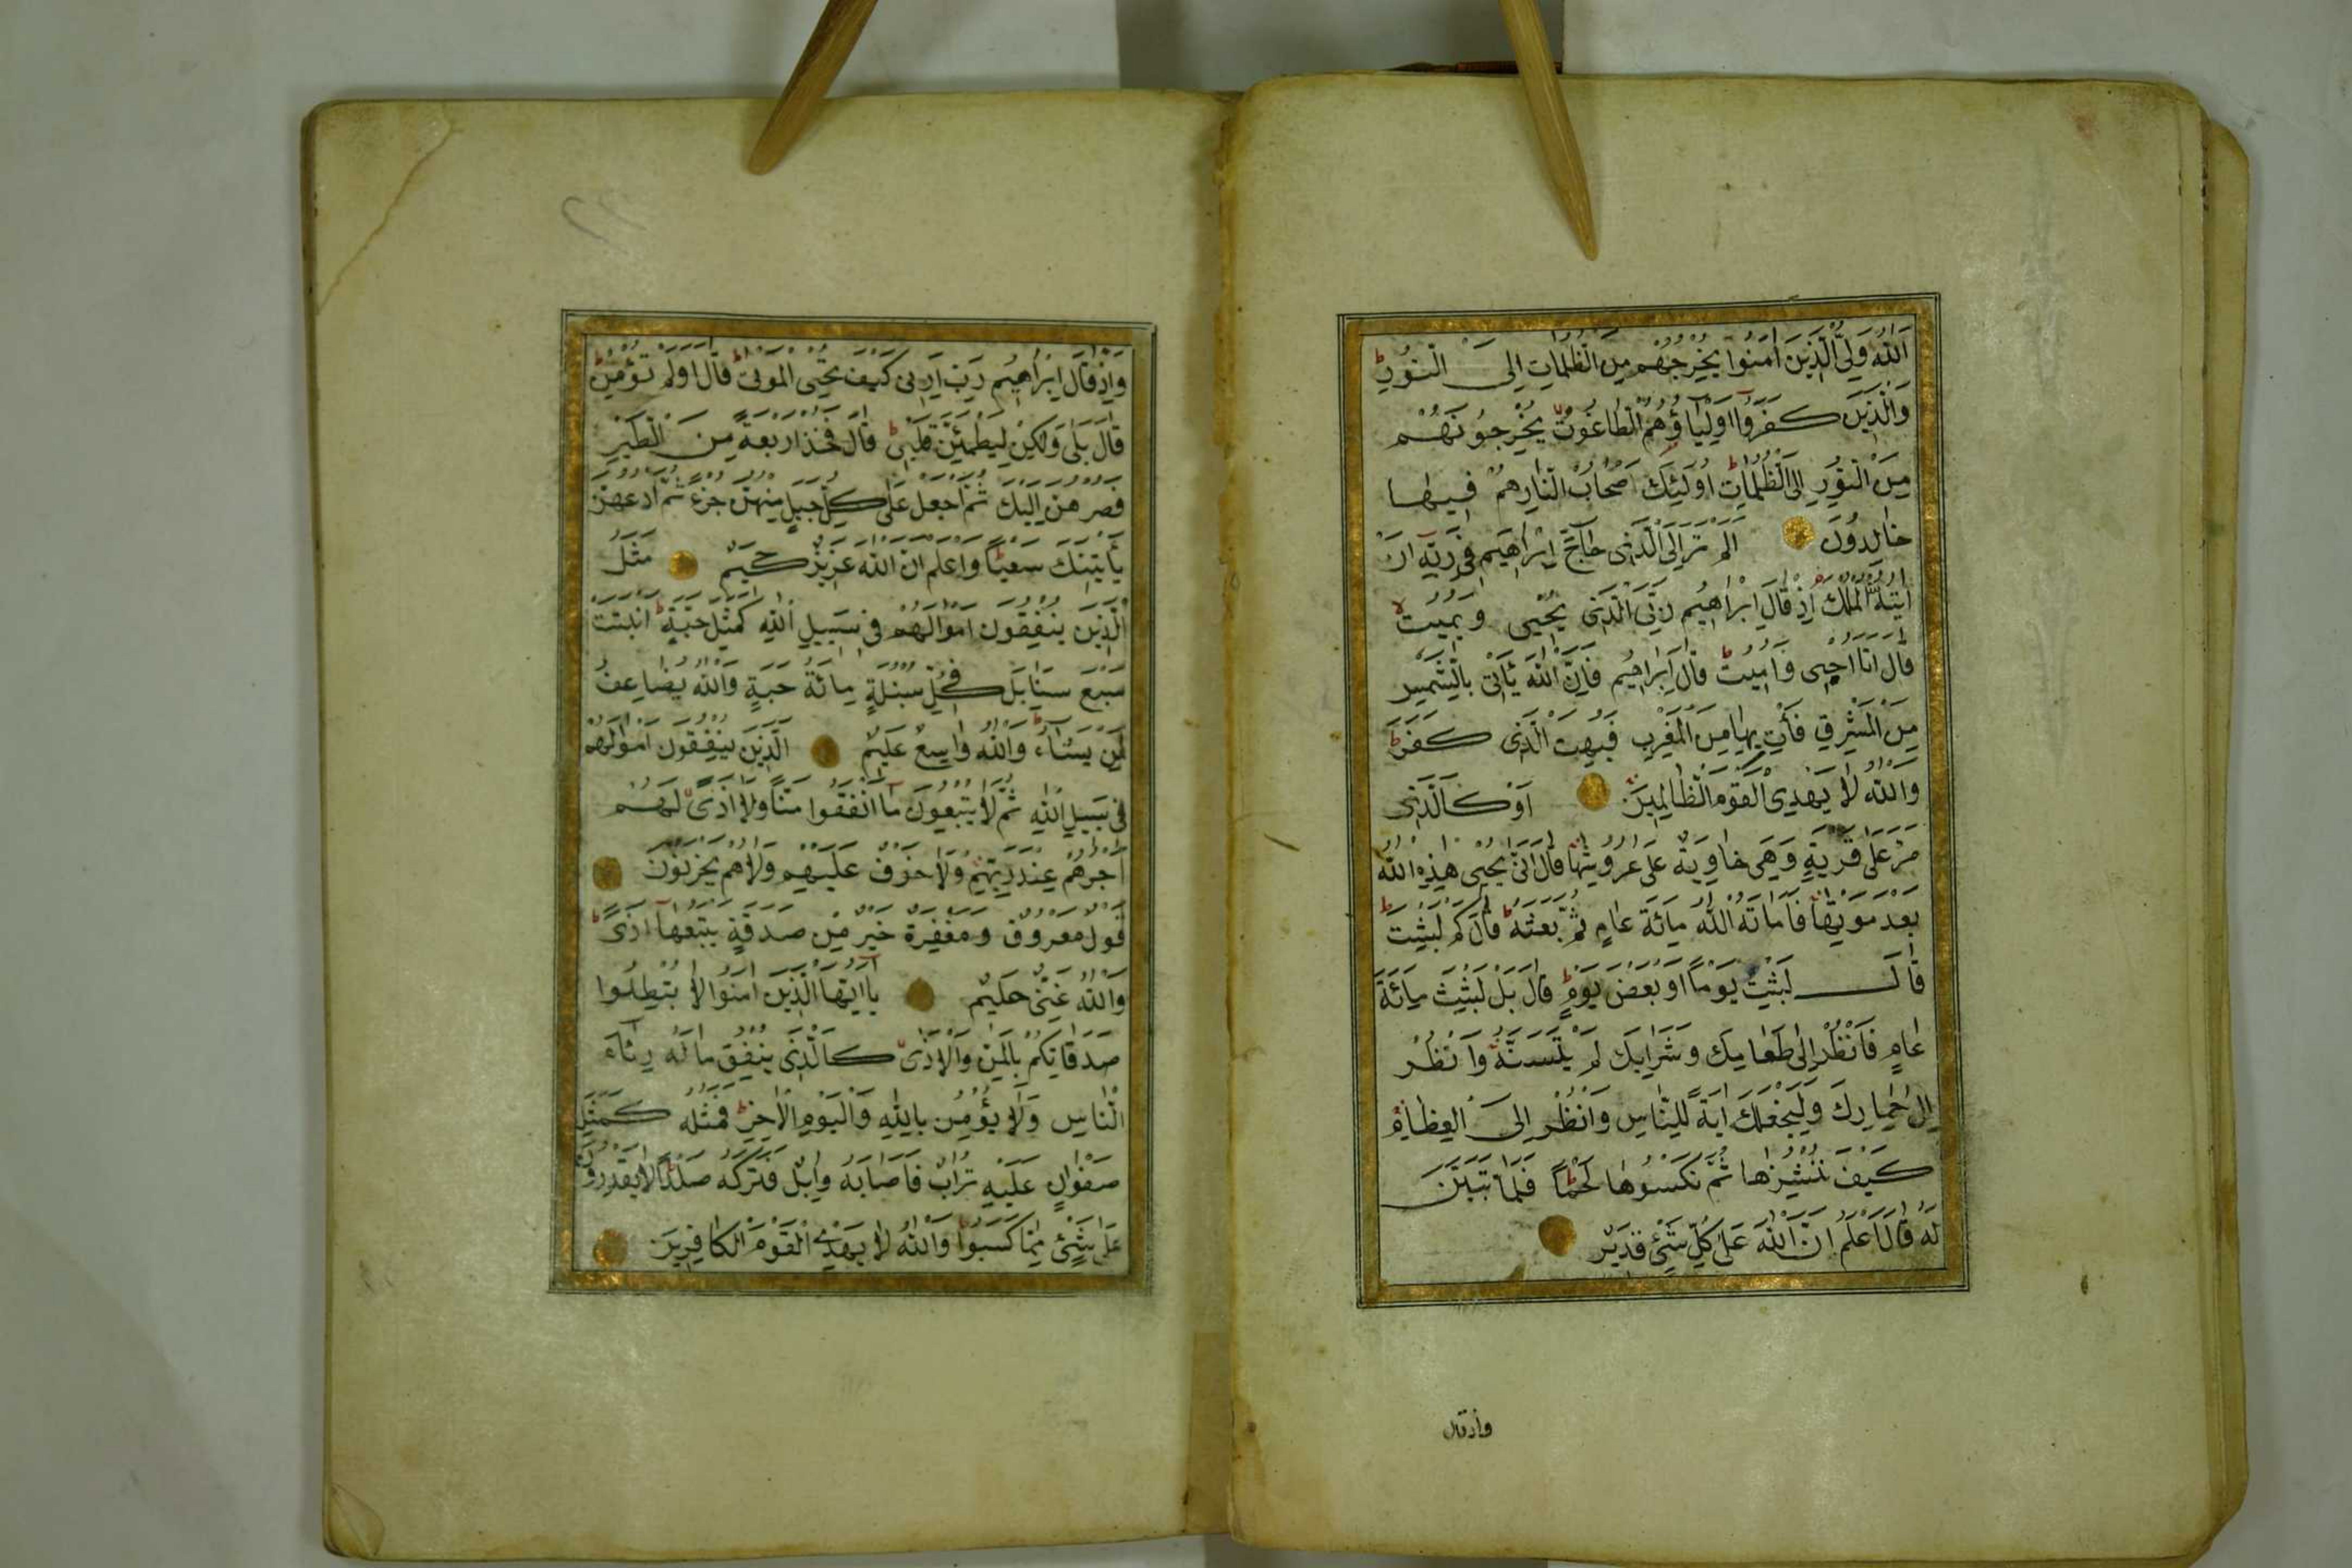 اَللّٰهُ وَلِيُّ الَّذِينَ اٰمَنُوا يُخْرِجُهُمْ مِنَ الظُّلُمَاتِ اِلَى النُّورِ
وَالَّذِينَ كَفَرُوا اَوْلِيَاؤُهُمُ الطَّاغُوتُ يُخْرِجُونَهُمْ
مِنَ النُّورِ اِلَى الظُّلُمَاتِ اُولٰئِكَ اَصْحَابُ النَّارِ هُمْ فِيهَا
خَالِدُونَ اَلَمْ تَرَ اِلَى الَّذِى حَاجَّ اِبْرَاهِيمَ فِى رَبِّهِ اَنْ
اٰتَيهُ اللّٰهُ الْمُلْكَ اِذْ قَالَ اِبْرَاهِيمُ رَبِّىَ الَّذِى يُحْيِى وَيُمِيتُ
قَالَ اَنَا اُحْيِى وَاُمِيتُ قَالَ اِبْرَاهِيمُ فَاِنَّ اللّٰهَ يَأْتِى بِالشَّمْسِ
مِنَ الْمَشْرِقِ فَأْتِ بِهَا مِنَ الْمَغْرِبِ فَبُهِتَ الَّذِى كَفَرَ
وَاللّٰهُ لَا يَهْدِى الْقَوْمَ الظَّالِمِينَ اَوْ كَالَّذِى
مَرَّ عَلٰى قَرْيَةٍ وَهِىَ خَاوِيَةٌ عَلٰى عُرُوشِهَا قَالَ اَنّٰى يُحْيِى هٰذِهِ اللّٰهُ
بَعْدَ مَوْتِهَا فَاَمَاتَهُ اللّٰهُ مِائَةَ عَامٍ ثُمَّ بَعَثَهُ قَالَ كَمْ لَبِثْتَ
قَالَ لَبِثْتُ يَوْمًا اَوْ بَعْضَ يَوْمٍ قَالَ بَلْ لَبِثْتَ مِائَةَ
عَامٍ فَانْظُرْ اِلٰى طَعَامِكَ وَشَرَابِكَ لَمْ يَتَسَنَّهْ وَانْظُرْ
اِلٰى حِمَارِكَ وَلِنَجْعَلَكَ اٰيَةً لِلنَّاسِ وَانْظُرْ اِلَى الْعِظَامِ
كَيْفَ نُنْشِزُهَا ثُمَّ نَكْسُوهَا لَحْمًا فَلَمَّا تَبَيَّنَ
لَهُ قَالَ اَعْلَمُ اَنَّ اللّٰهَ عَلٰى كُلِّ شَىْءٍ قَدِيرٌ
واذقال
وَاِذْ قَالَ اِبْرَاهِيمُ رَبِّ اَرِنِى كَيْفَ تُحْيِى الْمَوْتٰى قَالَ اَوَلَمْ تُؤْمِنْ
قَالَ بَلٰى وَلٰكِنْ لِيَطْمَئِنَّ قَلْبِى قَالَ فَخُذْ اَرْبَعَةً مِنَ الطَّيْرِ
فَصُرْهُنَّ اِلَيْكَ ثُمَّ اجْعَلْ عَلٰى كُلِّ جَبَلٍ مِنْهُنَّ جُزْءً ثُمَّ ادْعُهُنَّ
يَأْتِينَكَ سَعْيًا وَاعْلَمْ اَنَّ اللّٰهَ عَزِيزٌ حَكِيمٌ مَثَلُ
الَّذِينَ يُنْفِقُونَ اَمْوَالَهُمْ فِى سَبِيلِ اللّٰهِ كَمَثَلِ حَبَّةٍ اَنْبَتَتْ
سَبْعَ سَنَابِلَ فِى كُلِّ سُنْبُلَةٍ مِائَةُ حَبَّةٍ وَاللّٰهُ يُضَاعِفُ
لِمَنْ يَشَاءُ وَاللّٰهُ وَاسِعٌ عَلِيمٌ اَلَّذِينَ يُنْفِقُونَ اَمْوَالَهُمْ
فِى سَبِيلِ اللّٰهِ ثُمَّ لَا يُتْبِعُونَ مَا اَنْفَقُوا مَنًّا وَلَا اَذًى لَهُمْ
اَجْرُهُمْ عِنْدَ رَبِّهِمْ وَلَا خَوْفٌ عَلَيْهِمْ وَلَا هُمْ يَحْزَنُونَ
قَوْلٌ مَعْرُوفٌ وَمَغْفِرَةٌ خَيْرٌ مِنْ صَدَقَةٍ يَتْبَعُهَا اَذًى
وَاللّٰهُ غَنِىٌّ حَلِيمٌ يَا اَيُّهَا الَّذِينَ اٰمَنُوا لَا تُبْطِلُوا
صَدَقَاتِكُمْ بِالْمَنِّ وَالْاَذٰى كَالَّذِى يُنْفِقُ مَالَهُ رِئَاءَ
النَّاسِ وَلَا يُؤْمِنُ بِاللّٰهِ وَالْيَوْمِ الْاٰخِرِ فَمَثَلُهُ كَمَثَلِ
صَفْوَانٍ عَلَيْهِ تُرَابٌ فَاَصَابَهُ وَابِلٌ فَتَرَكَهُ صَلْدًا لَا يَقْدِرُونَ
عَلٰى شَىْءٍ مِمَّا كَسَبُوا وَاللّٰهُ لَا يَهْدِى الْقَوْمَ الْكَافِرِينَ